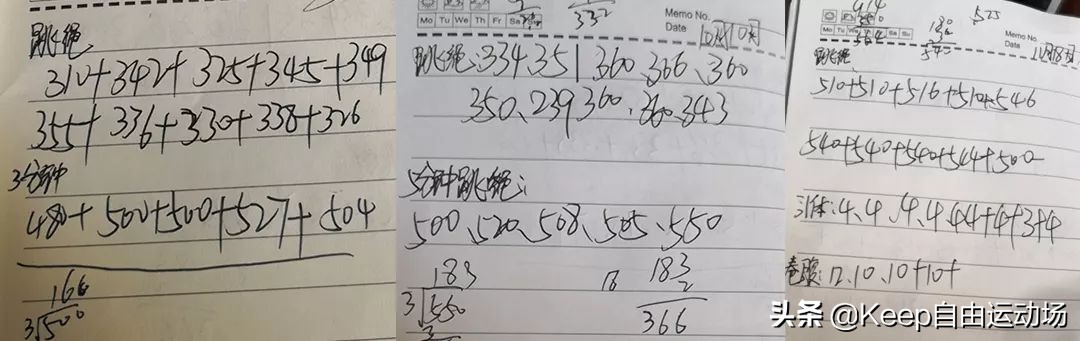 跳绳
310+342+325+345+349
355+336+330+338+326
3分钟
480+500+500+527+504
166
3√500
332
Mo Tu We Th Fr Sa
Memo No.
Date 10月10日
跳绳:334、351、360、366、360
350、239、360、360、343
5分钟跳绳:
500、520、508、505、550
183
3√550
18
183
2
366
914
180
540
525
Mo Tu We Th Fr Sa Su
Memo No.
Date
跳绳
510+510+516+510+546
540+540+540+544+500
引体:4、4、4、4、4+4+4+3+4
卷腹:12、10、10+10+
头条 @Keep自由运动场